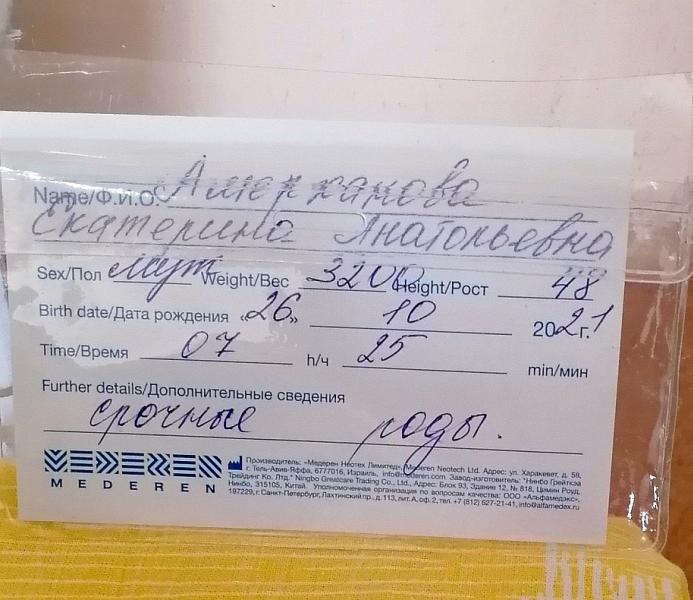 Name/Ф.И.О. Амерханова
Екатерина Анатольевна
Sex/Пол муж Weight/Вес 3200 Height/Рост 48
Birth date/Дата рождения «26» 10 2021г.
Time/Время 07 h/ч 25 min/мин
Further details/Дополнительные сведения
срочные роды.
MEDEREN
Производитель: «Медерен Неотех Лимитед», Mederen Neotech Ltd. Адрес: ул. Харакевет, д. 58,
г. Тель-Авив-Яффа, 6777016, Израиль, info@mederen.com. Завод-изготовитель: "Нинбо Грейткэа
Трейдинг Ко. Лтд." Ningbo Greatcare Trading Co., Ltd., Адрес: Блок 93, Здание 12, № 818, Цимин Роуд,
Нинбо, 315105, Китай. Уполномоченная организация по вопросам качества: ООО «Альфамедэкс»,
197229, г. Санкт-Петербург, Лахтинский пр., д. 113, лит. А, оф. 2, тел. +7 (812) 627-21-41, info@alfamedex.ru